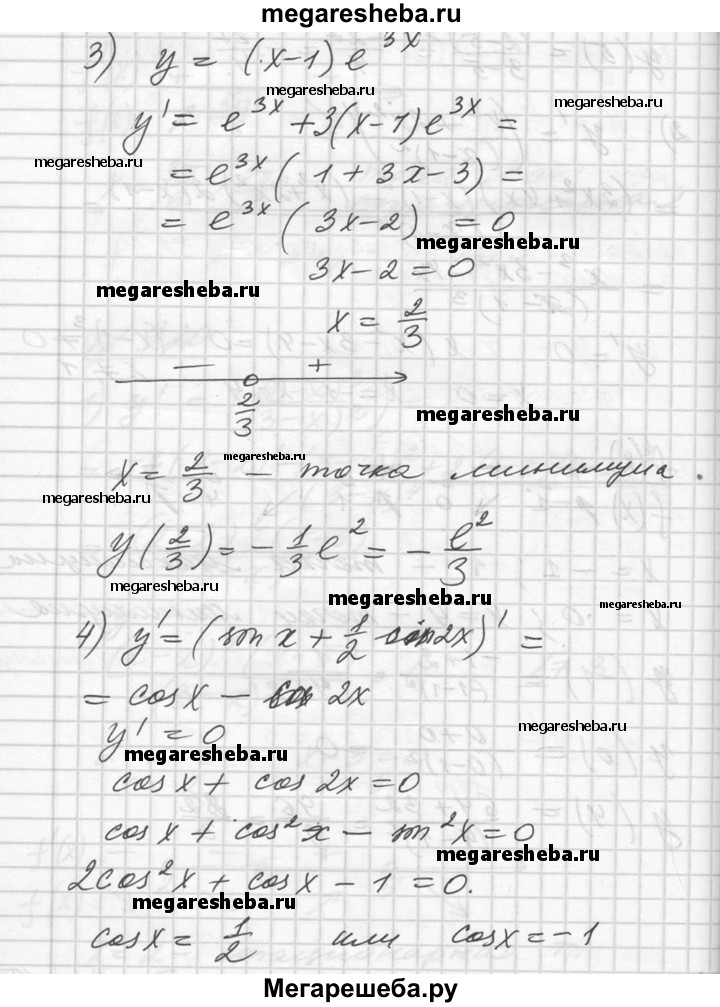 megaresheba.ru
3) y = (x-1) e^{3x}
megaresheba.ru
megaresheba.ru
y' = e^{3x} + 3(x-1)e^{3x} =
megaresheba.ru
= e^{3x} ( 1 + 3x - 3) =
= e^{3x} ( 3x-2) = 0
megaresheba.ru
3x - 2 = 0
megaresheba.ru
x = 2/3
— +
2/3
megaresheba.ru
megaresheba.ru
x = 2/3 — точка минимума .
megaresheba.ru
y(2/3) = - 1/3 e^2 = - e^2/3
megaresheba.ru
megaresheba.ru
megaresheba.ru
4) y' = (sin x + 1/2 sin 2x)' =
= cos x - cos 2x
megaresheba.ru
y' = 0
megaresheba.ru
cos x + cos 2x = 0
cos x + cos^2 x - sin^2 x = 0
megaresheba.ru
2cos^2 x + cos x - 1 = 0.
megaresheba.ru
cos x = 1/2 или cos x = -1
Мегарешеба.ру